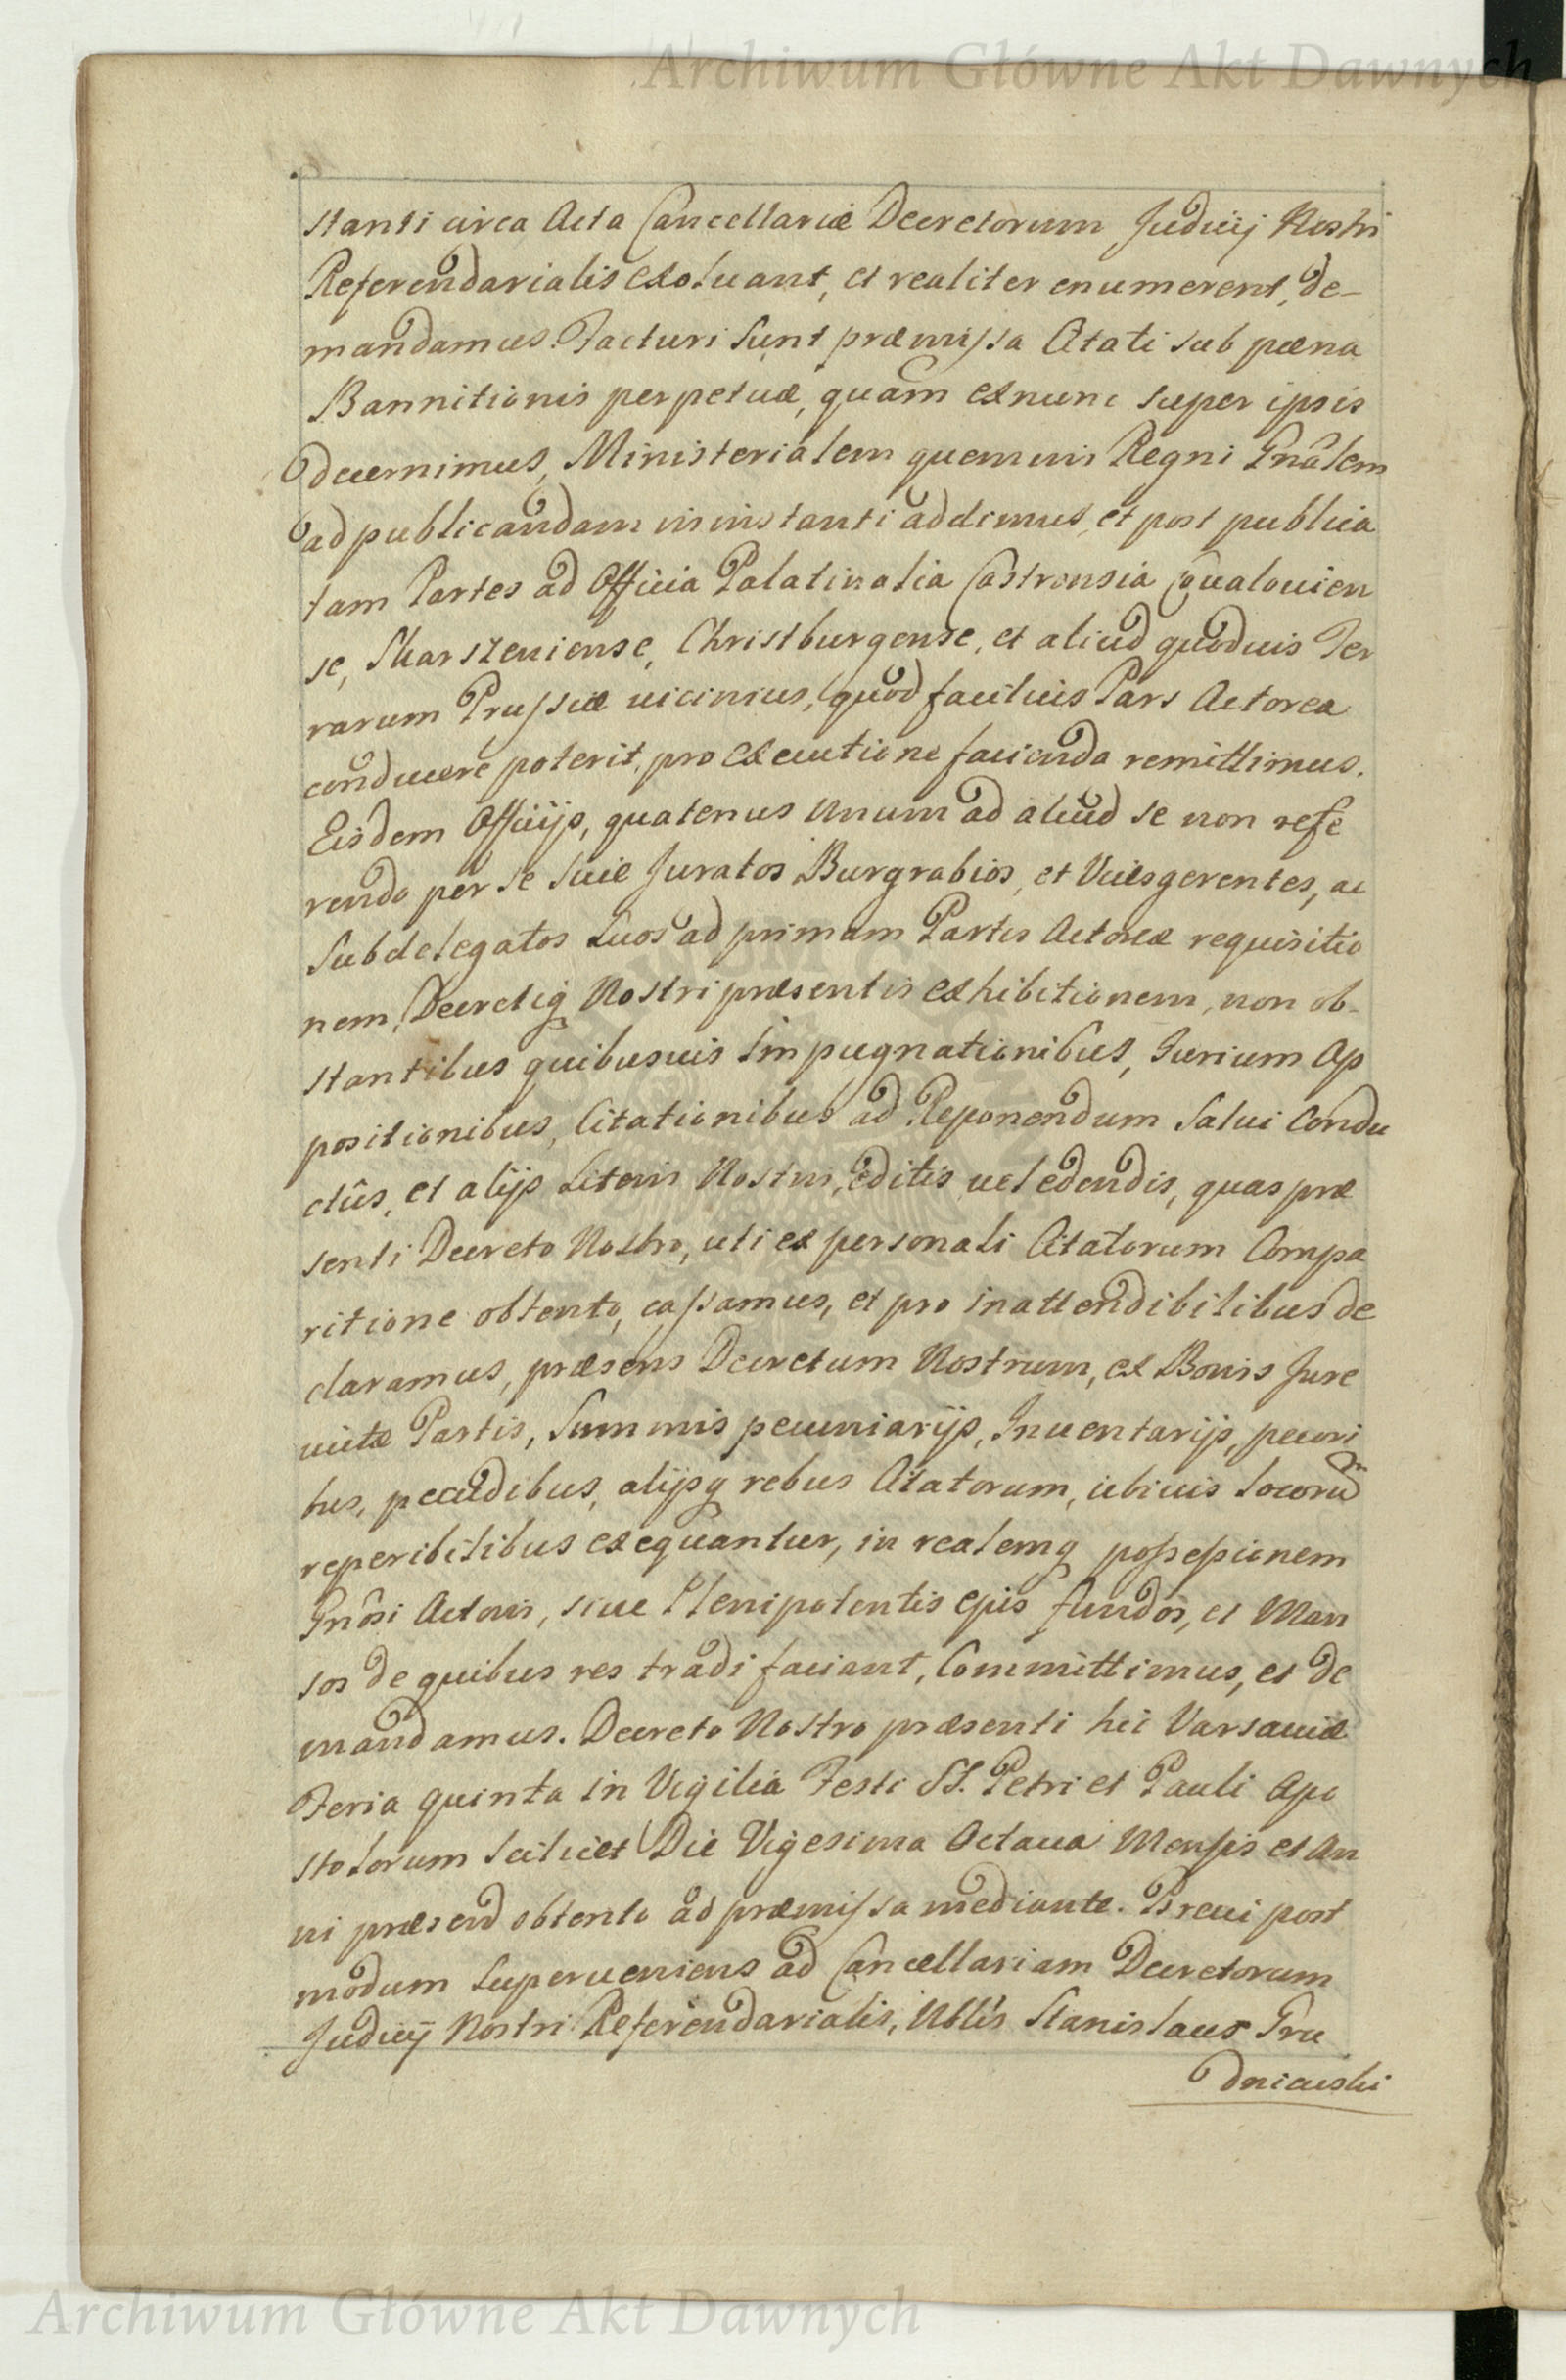 Archiwum Główne Akt Dawnych
stanti circa Acta Cancellariæ Decretorum Judicij Nostri
Referendarialis exoluant, et realiter enumerent, de-
mandamus. Facturi sunt præmissa Citati sub pæna
Bannitionis perpetuæ, quam exnunc super ipsis
decernimus, Ministerialem quemuis Regni Gnâlem
ad publicandam in instanti addimus, et post publica
tam Partes ad Officia Palatinalia Castrensia Covalouien
se, Skarszeuiense, Christburgense, et aliud quoduis Ter
rarum Prussiæ uicinius, quod facilius Pars Actorea
conducere poterit, pro executione facienda remittimus.
Eisdem Officijs, quatenus Unum ad aliud se non refe
rendo per se siue Juratos Burgrabios, et Vicesgerentes, ac
Subdelegatos Suos ad primam Partis Actoreæ requisitio
nem, Decretiq Nostri præsentis exhibitionem, non ob-
stantibus quibusuis Impugnationibus, Jurium Op
positionibus, Citationibus ad Reponendum Salui Condu
ctûs, et alijs Literis Nostris, editis uel edendis, quas præ
senti Decreto Nostro, uti ex personali Citatorum Compa
ritione obtento, cassamus, et pro inattendibilibus de
claramus, præsens Decretum Nostrum, ex Bonis Jure
uictæ Partis, Summis pecuniarijs, Inuentarijs, pecori
bus, pecudibus, alijsq rebus Citatorum, ubiuis locorum
reperibilibus exequantur, in realemq possessionem
Gnôsi Actoris, siue Plenipotentis ejus fundos, et Man
sos de quibus res tradi faciant, Committimus, et de
mandamus. Decreto Nostro præsenti hic Varsauiæ
Feria quinta in Vigilia Festi SS. Petri et Pauli Apo
stolorum scilicet Die Vigesima Octaua Mensis et An
ni præsend obtento ad præmissa mediante. Breui post
modum superueniens ad Cancellariam Decretorum
Judicij Nostri Referendarialis, Nblis Stanislaus Gru
dnieuski
Archiwum Główne Akt Dawnych